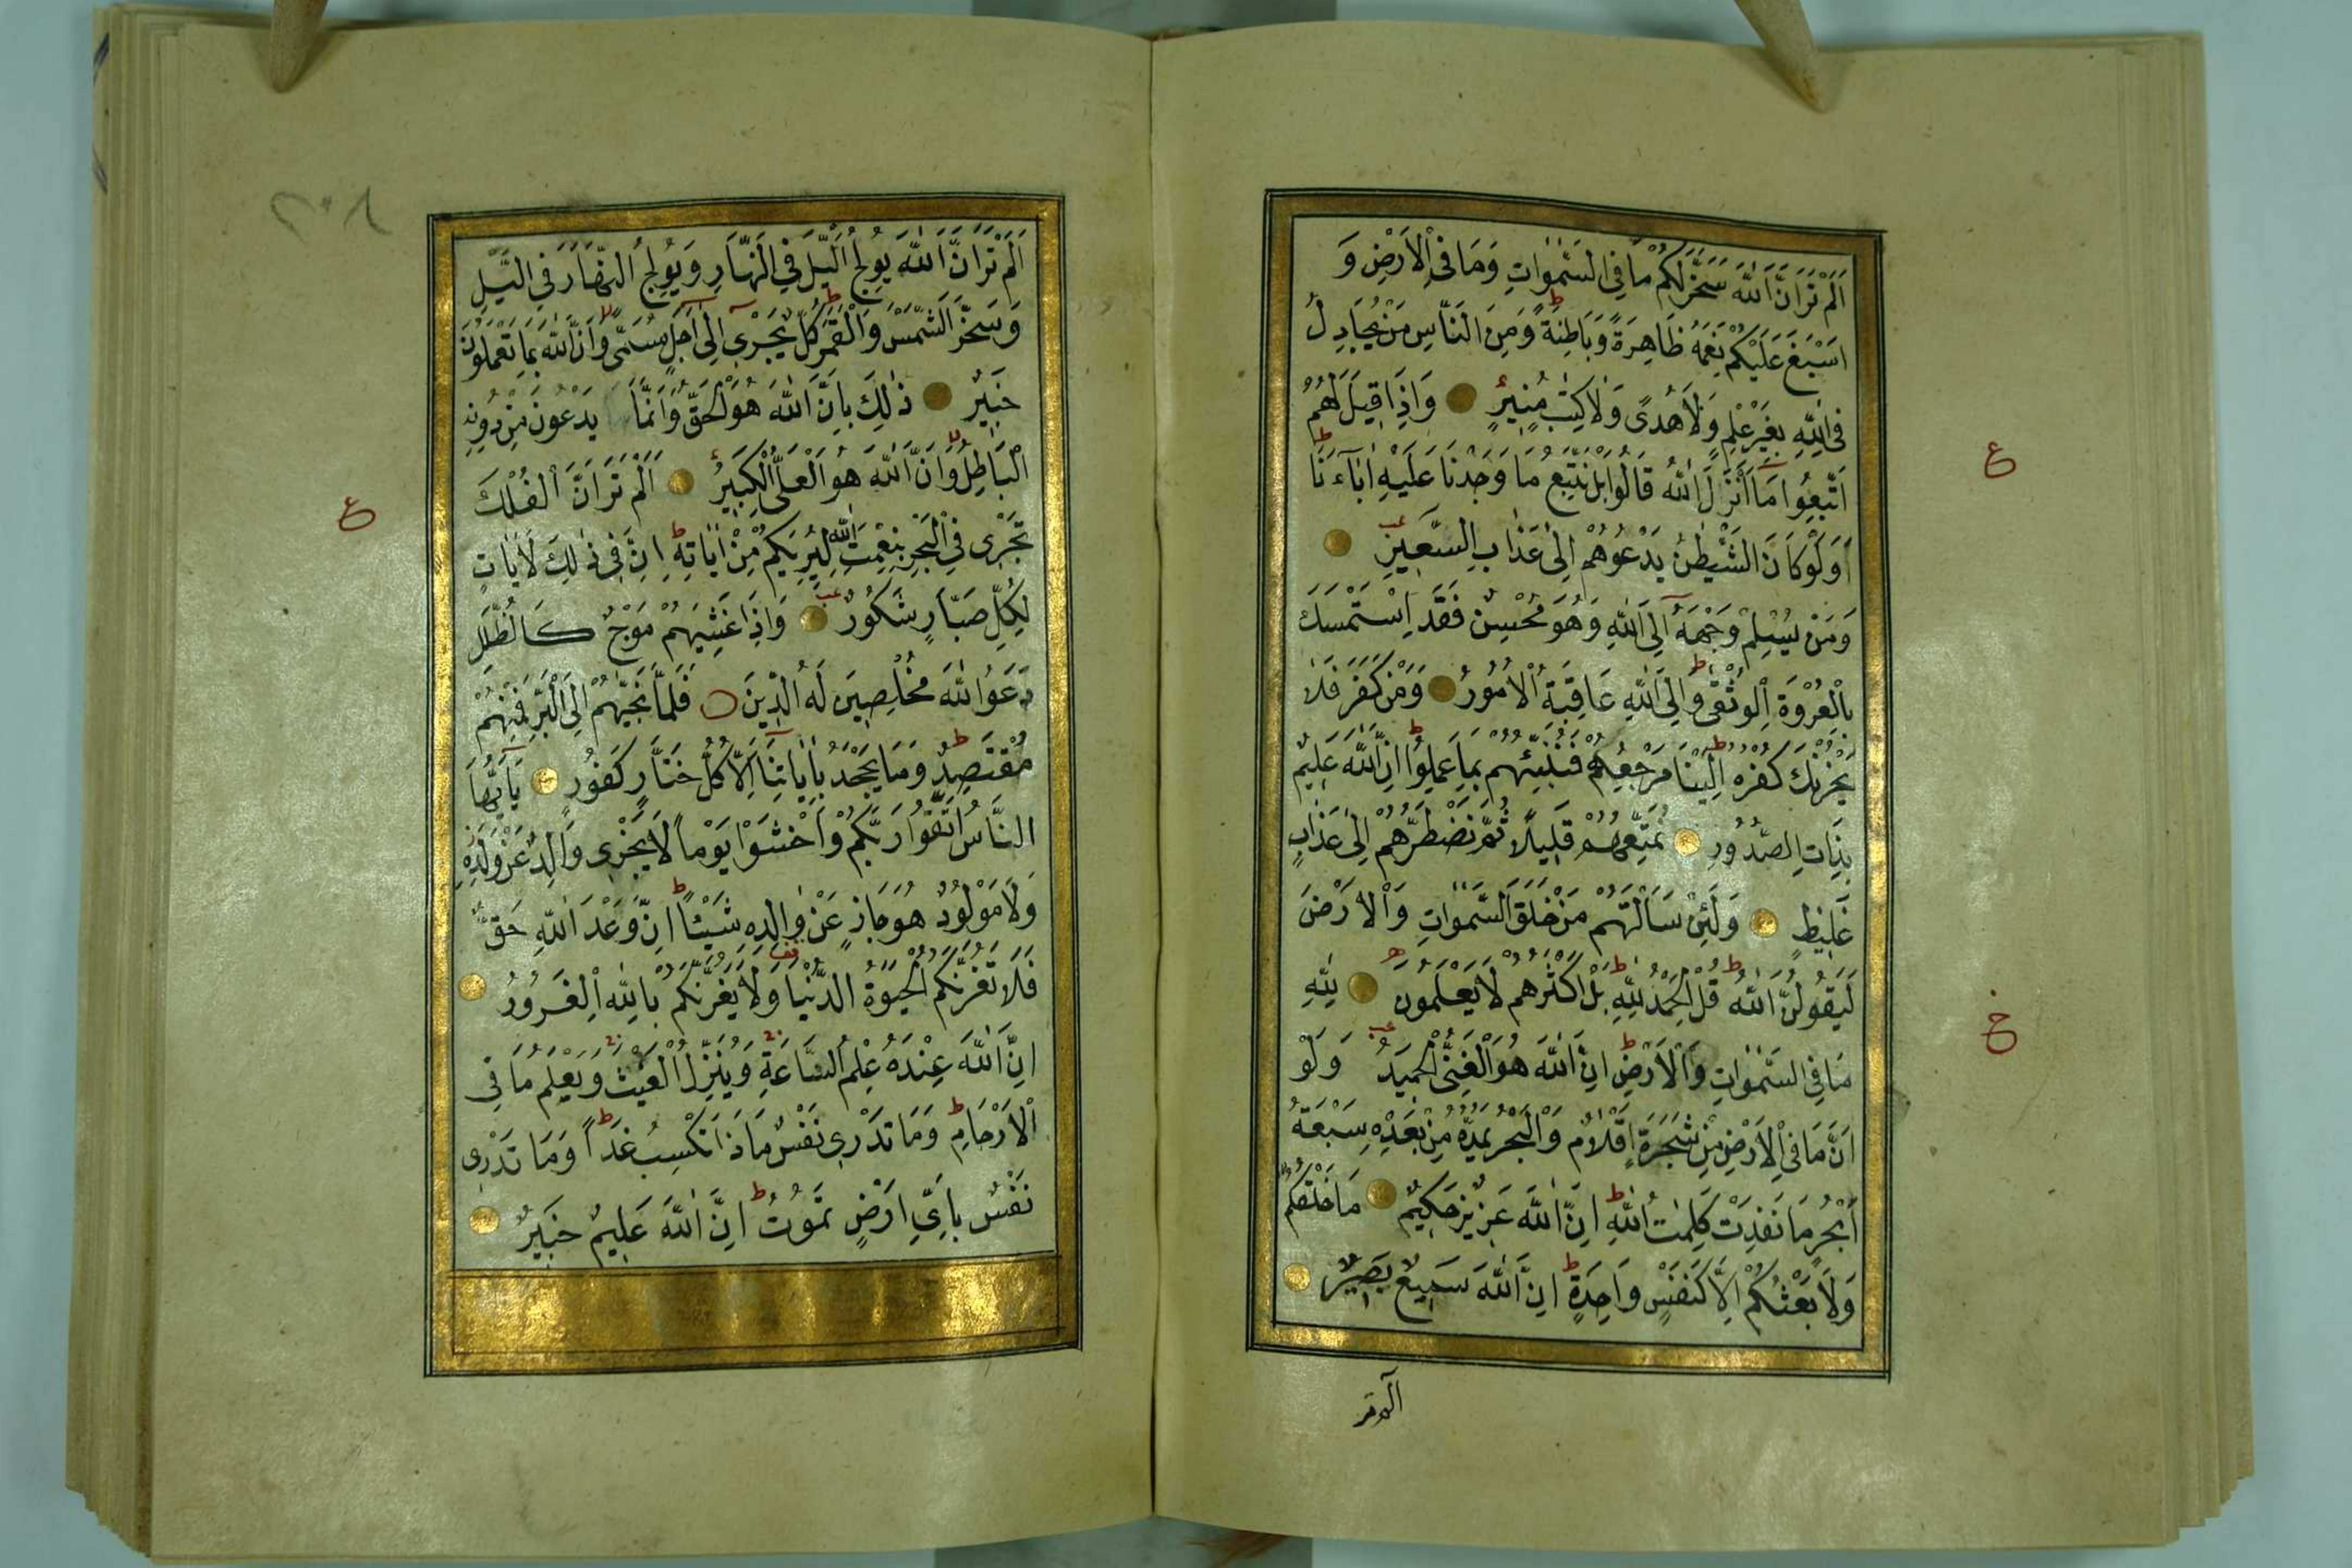 اَلَمْ تَرَ اَنَّ اللّٰهَ سَخَّرَ لَكُمْ مَا فِي السَّمٰوَاتِ وَمَا فِي الْاَرْضِ وَ
اَسْبَغَ عَلَيْكُمْ نِعَمَهُ ظَاهِرَةً وَبَاطِنَةً ط وَمِنَ النَّاسِ مَنْ يُجَادِلُ
فِي اللّٰهِ بِغَيْرِ عِلْمٍ وَلَا هُدًى وَلَا كِتٰبٍ مُنِيرٍ وَاِذَا قِيلَ لَهُمُ
اتَّبِعُوا مَا اَنْزَلَ اللّٰهُ قَالُوا بَلْ نَتَّبِعُ مَا وَجَدْنَا عَلَيْهِ اٰبَاءَنَا ط
ع
اَوَلَوْ كَانَ الشَّيْطٰنُ يَدْعُوهُمْ اِلٰى عَذَابِ السَّعِيرِ
وَمَنْ يُسْلِمْ وَجْهَهُ اِلَى اللّٰهِ وَهُوَ مُحْسِنٌ فَقَدِ اسْتَمْسَكَ
بِالْعُرْوَةِ الْوُثْقٰى ط وَاِلَى اللّٰهِ عَاقِبَةُ الْاُمُورِ وَمَنْ كَفَرَ فَلَا
يَحْزُنْكَ كُفْرُهُ اِلَيْنَا مَرْجِعُهُمْ فَنُنَبِّئُهُمْ بِمَا عَمِلُوا ط اِنَّ اللّٰهَ عَلِيمٌ
بِذَاتِ الصُّدُورِ نُمَتِّعُهُمْ قَلِيلًا ثُمَّ نَضْطَرُّهُمْ اِلٰى عَذَابٍ
غَلِيظٍ وَلَئِنْ سَاَلْتَهُمْ مَنْ خَلَقَ السَّمٰوَاتِ وَالْاَرْضَ
لَيَقُولُنَّ اللّٰهُ ط قُلِ الْحَمْدُ لِلّٰهِ ط بَلْ اَكْثَرُهُمْ لَا يَعْلَمُونَ لِلّٰهِ
مَا فِي السَّمٰوَاتِ وَالْاَرْضِ ط اِنَّ اللّٰهَ هُوَ الْغَنِيُّ الْحَمِيدُ وَلَوْ
اَنَّ مَا فِي الْاَرْضِ مِنْ شَجَرَةٍ اَقْلَامٌ وَالْبَحْرُ يَمُدُّهُ مِنْ بَعْدِهِ سَبْعَةُ
اَبْحُرٍ مَا نَفِدَتْ كَلِمٰتُ اللّٰهِ ط اِنَّ اللّٰهَ عَزِيزٌ حَكِيمٌ مَا خَلْقُكُمْ
وَلَا بَعْثُكُمْ اِلَّا كَنَفْسٍ وَاحِدَةٍ ط اِنَّ اللّٰهَ سَمِيعٌ بَصِيرٌ
الم تر
اَلَمْ تَرَ اَنَّ اللّٰهَ يُولِجُ الَّيْلَ فِي النَّهَارِ وَيُولِجُ النَّهَارَ فِي الَّيْلِ
وَسَخَّرَ الشَّمْسَ وَالْقَمَرَ ط كُلٌّ يَجْرِي اِلٰى اَجَلٍ مُسَمًّى وَاَنَّ اللّٰهَ بِمَا تَعْمَلُونَ
خَبِيرٌ ذٰلِكَ بِاَنَّ اللّٰهَ هُوَ الْحَقُّ وَاَنَّمَا يَدْعُونَ مِنْ دُونِهِ
الْبَاطِلُ وَاَنَّ اللّٰهَ هُوَ الْعَلِيُّ الْكَبِيرُ اَلَمْ تَرَ اَنَّ الْفُلْكَ
ع
تَجْرِي فِي الْبَحْرِ بِنِعْمَتِ اللّٰهِ لِيُرِيَكُمْ مِنْ اٰيَاتِهِ ط اِنَّ فِي ذٰلِكَ لَاٰيَاتٍ
لِكُلِّ صَبَّارٍ شَكُورٍ وَاِذَا غَشِيَهُمْ مَوْجٌ كَالظُّلَلِ
دَعَوُا اللّٰهَ مُخْلِصِينَ لَهُ الدِّينَ فَلَمَّا نَجّٰيهُمْ اِلَى الْبَرِّ فَمِنْهُمْ
مُقْتَصِدٌ ط وَمَا يَجْحَدُ بِاٰيَاتِنَا اِلَّا كُلُّ خَتَّارٍ كَفُورٍ يَا اَيُّهَا
النَّاسُ اتَّقُوا رَبَّكُمْ وَاخْشَوْا يَوْمًا لَا يَجْزِي وَالِدٌ عَنْ وَلَدِهِ
وَلَا مَوْلُودٌ هُوَ جَازٍ عَنْ وَالِدِهِ شَيْئًا ط اِنَّ وَعْدَ اللّٰهِ حَقٌّ
فَلَا تَغُرَّنَّكُمُ الْحَيٰوةُ الدُّنْيَا وَلَا يَغُرَّنَّكُمْ بِاللّٰهِ الْغَرُورُ
اِنَّ اللّٰهَ عِنْدَهُ عِلْمُ السَّاعَةِ وَيُنَزِّلُ الْغَيْثَ وَيَعْلَمُ مَا فِي
الْاَرْحَامِ ط وَمَا تَدْرِي نَفْسٌ مَاذَا تَكْسِبُ غَدًا ط وَمَا تَدْرِي
نَفْسٌ بِاَيِّ اَرْضٍ تَمُوتُ ط اِنَّ اللّٰهَ عَلِيمٌ خَبِيرٌ